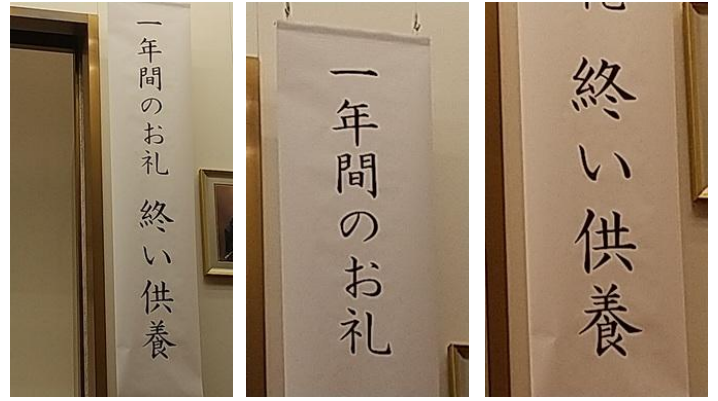 一年間のお礼 終い供養
一年間のお礼
終い供養